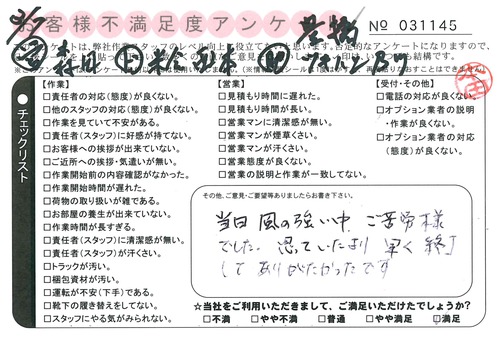 お客様不満足度アンケート
No 031145
チェックリスト
【作業】
□責任者の対応(態度)が良くない。
□他のスタッフの対応(態度)が良くない。
□作業を見ていて不安がある。
□責任者(スタッフ)に好感が持てない。
□お客様への挨拶が出来ていない。
□ご近所への挨拶・気遣いが無い。
□作業開始前の内容確認がなかった。
□作業開始時間が遅れた。
□荷物の取り扱いが雑である。
□お部屋の養生が出来ていない。
□作業時間が長すぎる。
□責任者(スタッフ)に清潔感が無い。
□責任者(スタッフ)が汗くさい。
□トラックが汚い。
□梱包資材が汚い。
□運転が不安(下手)である。
□靴下の履き替えをしてない。
□スタッフにやる気がみられない。
【営業】
□見積もり時間に遅れた。
□見積もり時間が長い。
□営業マンに清潔感が無い。
□営業マンが煙草くさい。
□営業マンが汗くさい。
□営業態度が良くない。
□営業の説明と作業が一致してない。
【受付・その他】
□電話の対応が良くない。
□オプション業者の説明
・作業が良くない。
□オプション業者の対応
(態度)が良くない。
その他、ご意見・ご要望等ありましたらお書き下さい。
当日 風の強い中 ご苦労様
でした。思っていたより 早く 終了
して ありがたかったです
☆当社をご利用いただきまして、ご満足いただけたでしょうか?
□不満 □やや不満 □普通 □やや満足 □満足